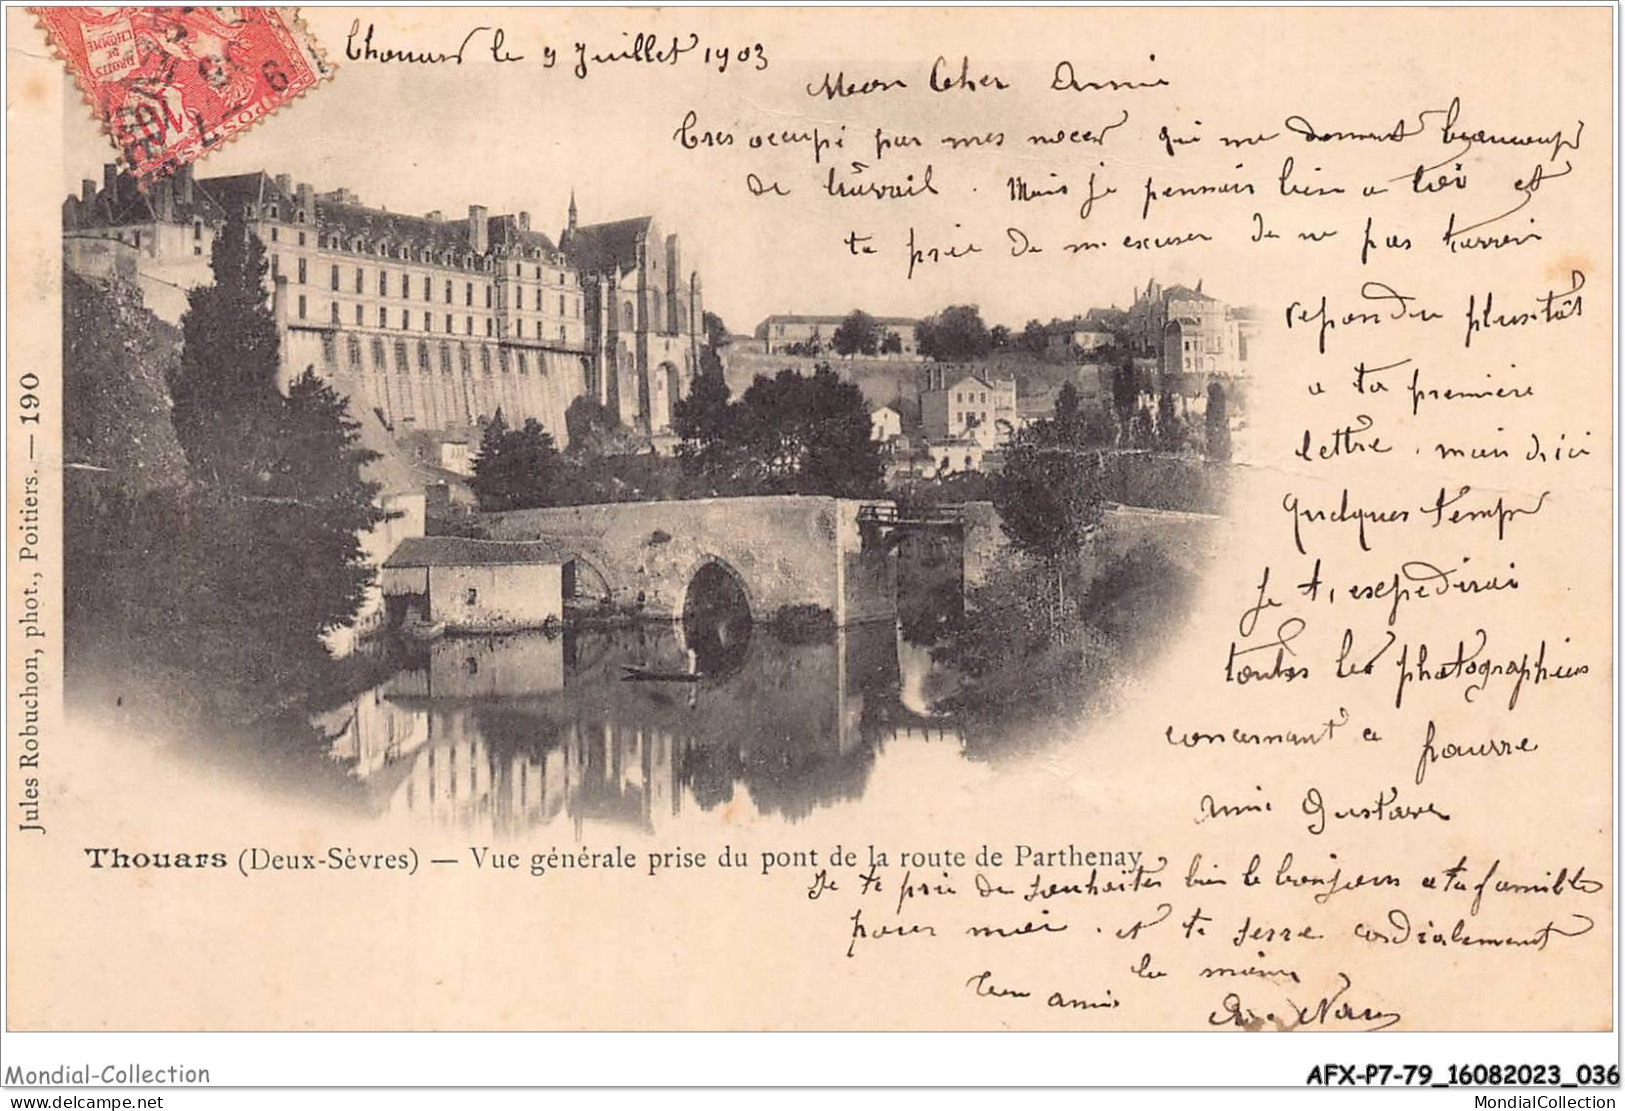 Thouars le 9 Juillet 1903
Mon Cher Amie
Tres occupé par mes noces qui me donnent beaucoup
de travail. Mais je pensais bien a toi et
te prie de m'excuser de ne pas t'avoir
repondu plus tôt
a ta première
lettre. mais d'ici
quelques temps
Je t'expedirai
toutes les photographies
concernant ce pauvre
ami Gustave
Je te prie de souhaiter bien le bonjour a ta famille
pour moi. et te serre cordialement
la main
Ton ami
DROITS
DE
L'HOMME
POSTE
Jules Robuchon, phot., Poitiers. — 190
Thouars (Deux-Sèvres) — Vue générale prise du pont de la route de Parthenay
Mondial-Collection
AFX-P7-79_16082023_036
delcampe.net
MondialCollection